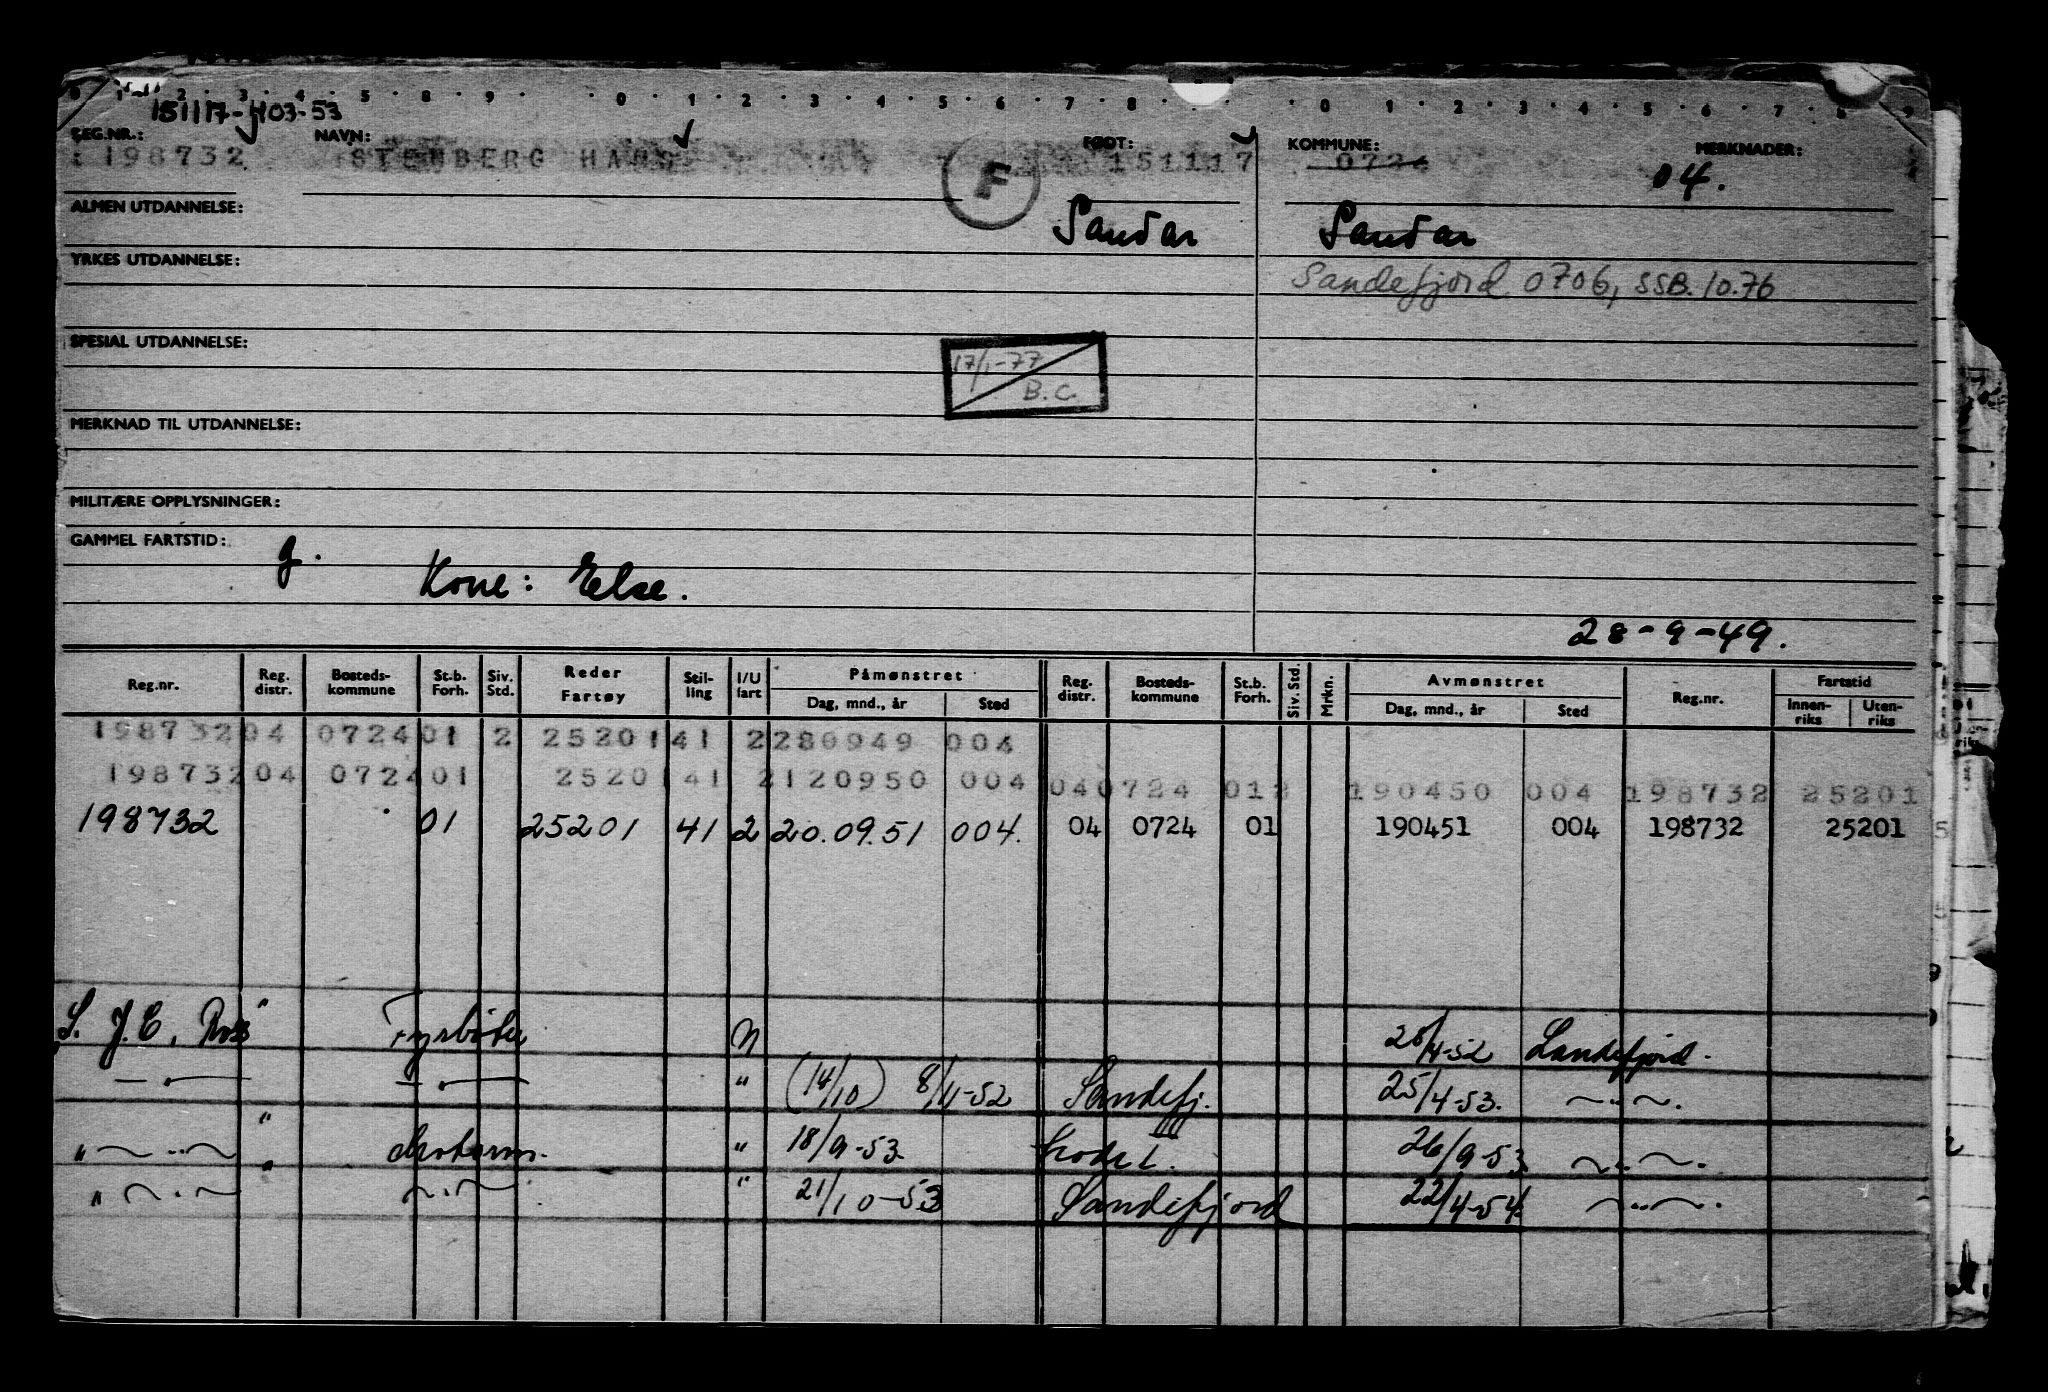 0 1 2 3 4 5 8 9 0 1 2 3 4 5 6 7 8 0 1 2 3 4 5 6 7 8 9
151117-403-53
REG.NR.: NAVN: FØDT: KOMMUNE: MERKNADER:
198732 STENBERG HANS 151117 0724
04.
F
ALMEN UTDANNELSE: Sandar Sandar
YRKES UTDANNELSE: Sandefjord 0706, SSB. 10.76
SPESIAL UTDANNELSE:
17/1-77
B.C.
MERKNAD TIL UTDANNELSE:
MILITÆRE OPPLYSNINGER:
GAMMEL FARTSTID: g.
Kone: Else.
28-9-49.
Reg.nr. Reg. distr. Bosteds-kommune St.b. Forh. Siv. Std. Reder Fartøy Stil-ling I/U fart Påmønstret Dag, mnd., år Sted Reg. distr. Bosteds-kommune St.b. Forh. Siv. Std. Mrkn. Avmønstret Dag, mnd., år Sted Reg.nr. Fartstid Innen-riks Uten-riks
198732 04 0724 01 2 25201 41 2 280949 004
198732 04 0724 01 25201 41 2 120950 004 04 0724 012 190450 004 198732 25201
198732 01 25201 41 2 20.09.51 004. 04 0724 01 190451 004 198732 25201
S. J.C. Ross" Fyrbøter N 28/4-52 Sandefjord.
— — " (14/10) 8/11-52 Sandefj. 25/4-53. ~..~.
" ~..~ " Motorm. " 18/9-53 26/9-53 ~..~.
" ~.~ " ~.~ " 21/10-53 Sandefjord 22/4-54 ~..~.